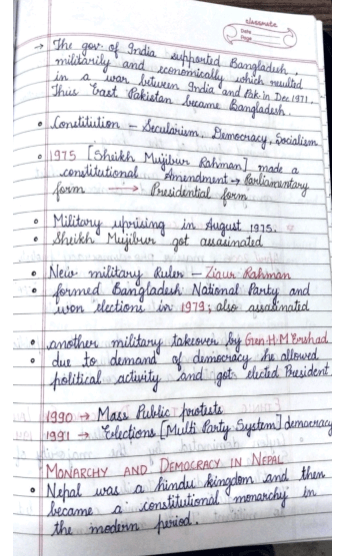 classmate
Date
Page
→ The gov. of India supported Bangladesh,
militarily and economically which resulted
in a war between India and Pak in Dec 1971.
Thus East Pakistan became Bangladesh.
• Constitution – Secularism, Democracy, Socialism
• 1975 [Sheikh Mujibur Rahman] made a
constitutional Amendment → Parliamentary
form → Presidential form
• Military uprising in August 1975.
• Sheikh Mujibur got assasinated
• New military Ruler – Ziaur Rahman
• formed Bangladesh National Party and
won elections in 1979; also assasinated
• another military takeover by Gen. H.M Ershad
• due to demand of democracy he allowed
political activity and got elected President
1990 → Mass Public protests
1991 → Elections [Multi Party System] democracy
MONARCHY AND DEMOCRACY IN NEPAL
• Nepal was a hindu kingdom and then
became a constitutional monarchy in
the modern period.